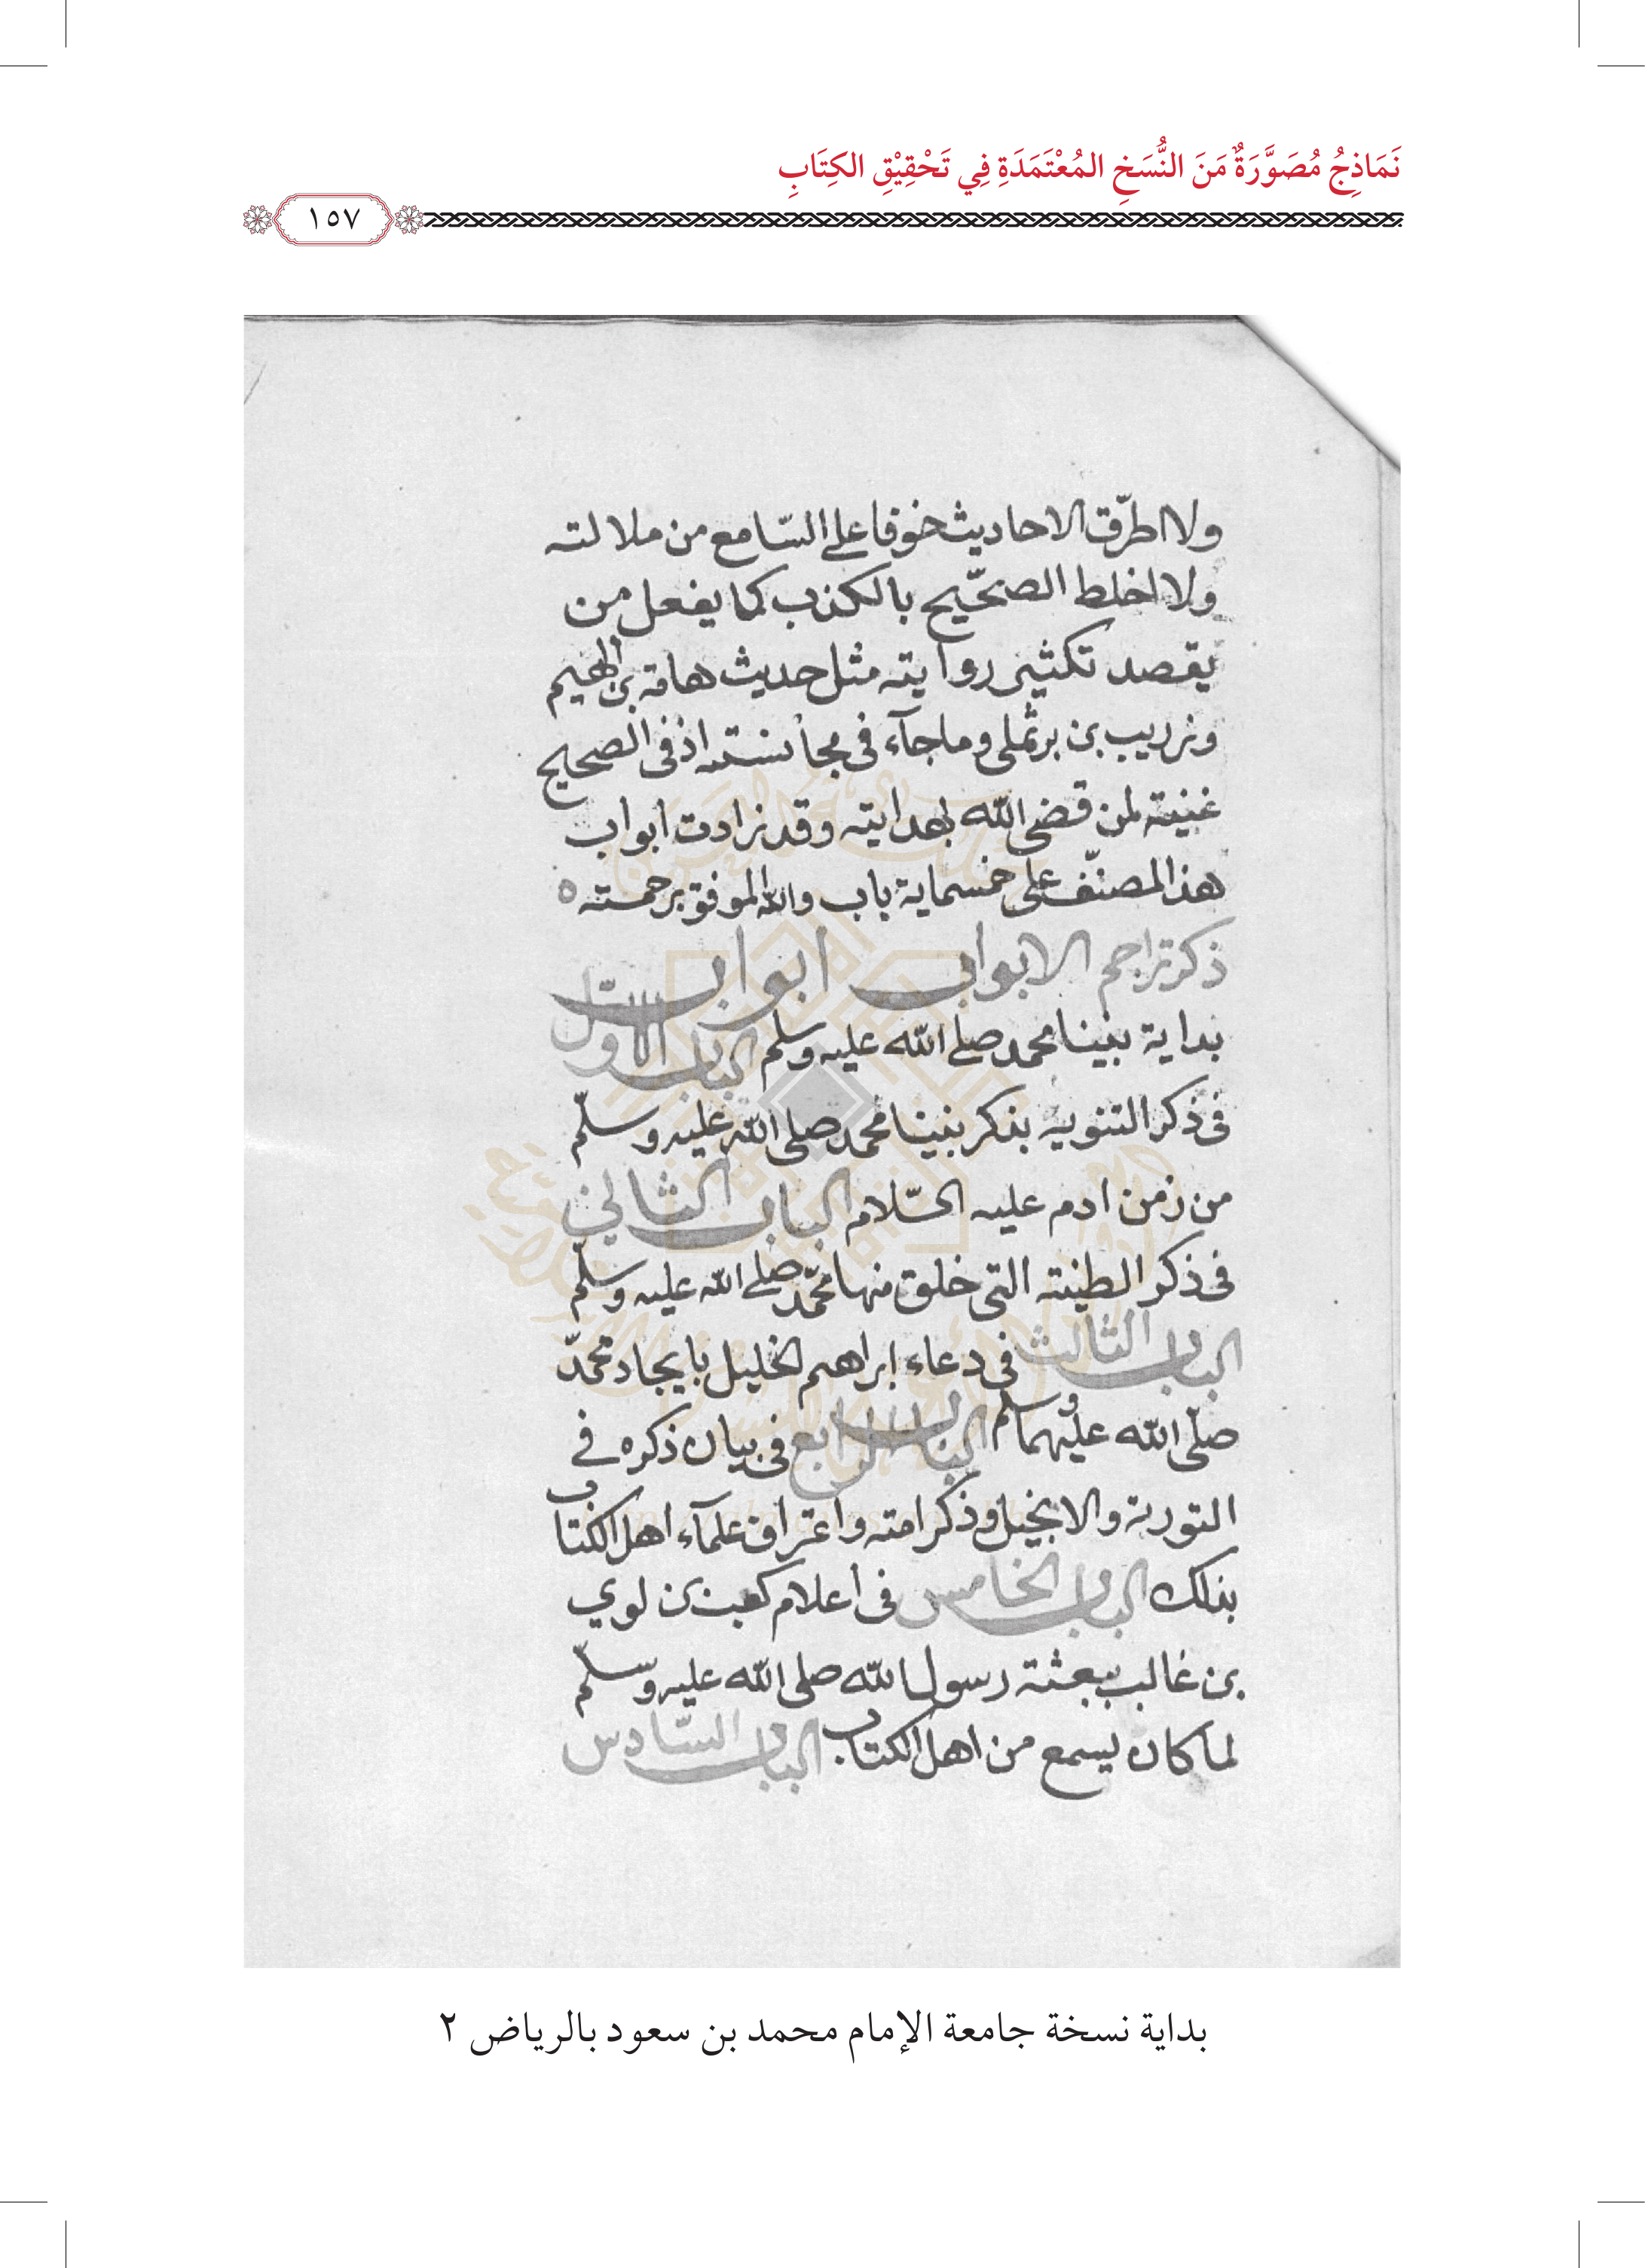 نَمَاذِجُ مُصَوَّرَةٌ مَنَ النُّسَخِ المُعْتَمَدَةِ فِي تَحْقِيْقِ الكِتَابِ
١٥٧
ولا اطرّق الاحاديث خوفا على السّامع من ملالته
ولا اخلط الصحّيح بالكذب كما يفعل من
يقصد تكثير روايته مثل حديث هامة بن الهيم
وزريب بن برثملى وماجآء فى اذ فى الصحيح
غنية لمن قضى اللّه بهدايته وقد زادت ابواب
هذا المصنّف على خمسماية باب والله الموفق برحمته ه
ذكر تراجم الابواب ابواب
بداية نبينا محمد صلى اللّه عليه وسلم الباب الاول
فى ذكر التنويه بذكر نبينا محمد صلى اللّه عليه وسلّم
من زمن ادم عليه السّلام الباب الثانى
فى ذكر الطينة التى خلق منها محمّد صلى اللّه عليه وسلّم
الباب الثالث فى دعاء ابراهيم الخليل بايجاد محمّد
صلّى اللّه عليهما وسلم الباب الرابع فى بيان ذكره فى
التورية والانجيل وذكر امته واعتراف علمآء اهل الكتاب
بذلك الباب الخامس فى اعلام كعب بن لوي
بن غالب ببعثة رسول اللّه صلى اللّه عليه وسلّم
لما كان يسمع من اهل الكتاب الباب السّادس
بداية نسخة جامعة الإمام محمد بن سعود بالرياض ٢